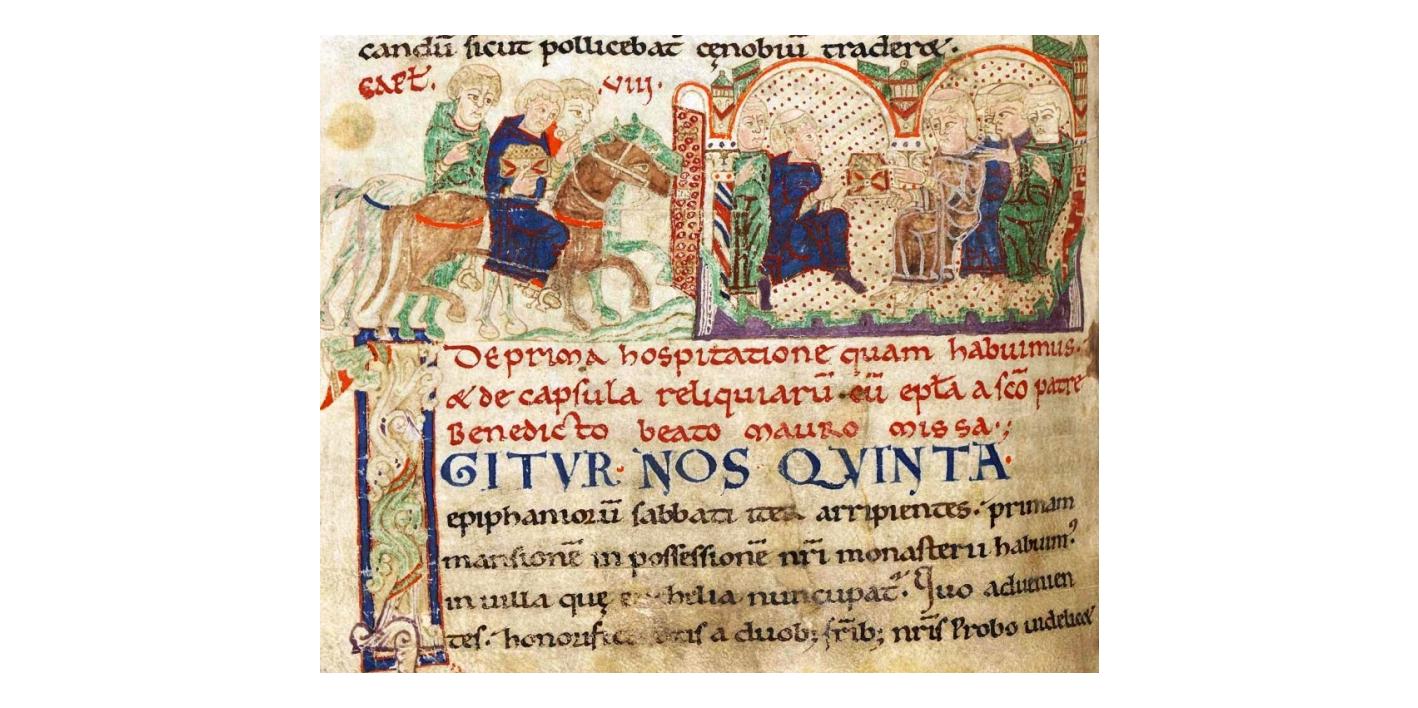 candū sicut pollicebat̄ cęnobiū traderet.
CAPT̄. VIII.
De prima hospitatione quam habuimus.
& de capsula reliquiarū cū ep̄ła a sc̄o patre
Benedicto beato Mauro missa.;
IGITVR NOS QVINTA
epiphaniorū sabbati iter arripientes. primam
mansionē in possessionē nr̄i monasterii habuim᾽
in uilla quę helia nuncupat̄. Quo aduenien
tes. honorific a duob; fr̄ib; nr̄is Probo uidelicet